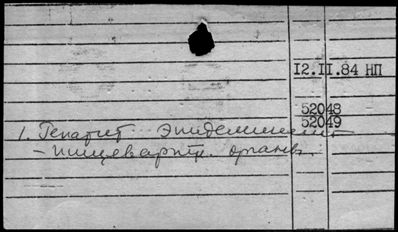 12.II.84 НП
52048
52049
1. Гепатит эпидемический
- пищеварит. органы